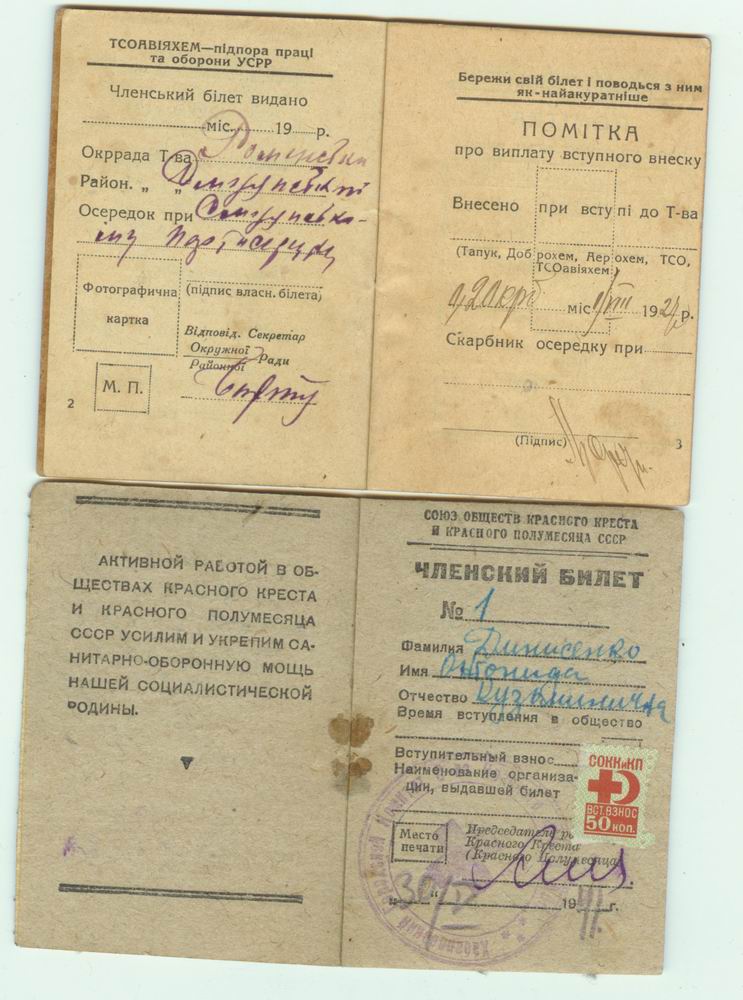 ТСОАВІЯХЕМ—підпора праці
та оборони УСРР
Членський білет видано
міс. 19 р.
Окррада Т-ва Роменська
Район. „ „
Осередок при
Фотографична
картка
(підпис власн. білета)
Відповід. Секретар
Окружної Ради
Районної
М. П.
2
Бережи свій білет і поводься з ним
як-найакуратніше
ПОМІТКА
про виплату вступного внеску
Внесено при вступі до Т-ва
(Тапук, Доброхем, Аерохем, ТСО,
ТСОавіяхем)
міс VIII 1927 р.
Скарбник осередку при
(Підпис)
3
АКТИВНОЙ РАБОТОЙ В ОБ-
ЩЕСТВАХ КРАСНОГО КРЕСТА
И КРАСНОГО ПОЛУМЕСЯЦА
СССР УСИЛИМ И УКРЕПИМ СА-
НИТАРНО-ОБОРОННУЮ МОЩЬ
НАШЕЙ СОЦИАЛИСТИЧЕСКОЙ
РОДИНЫ.
СОЮЗ ОБЩЕСТВ КРАСНОГО КРЕСТА
И КРАСНОГО ПОЛУМЕСЯЦА СССР
ЧЛЕНСКИЙ БИЛЕТ
№ 1
Фамилия Денисенко
Имя
Отчество Кузьминична
Время вступления в общество
Вступительный взнос
Наименование организа-
ции, выдавшей билет
СОКК и КП
ВСТ. ВЗНОС
50 КОП.
Место
печати
Председатель
Красного Креста
(Красного Полумесяца)
„30/V“ 1941 г.